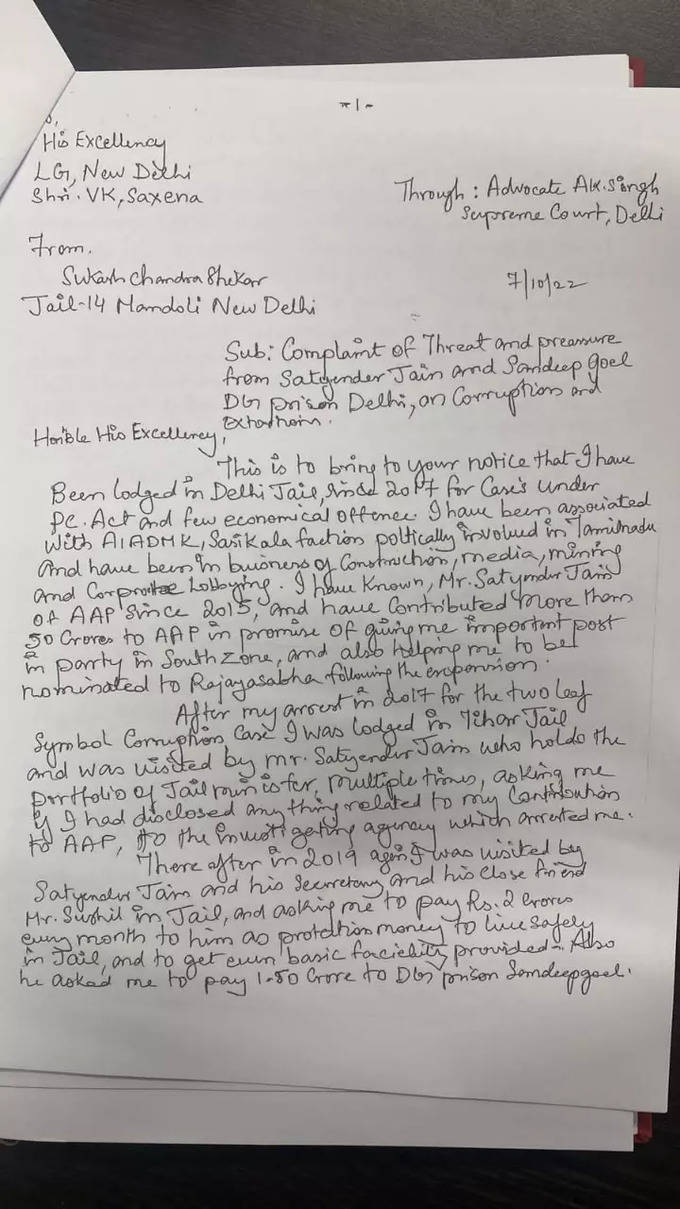 -1-
His Excellency
LG, New Delhi
Shri. VK, Saxena
Through: Advocate AK. Singh
Supreme Court, Delhi
From.
Sukash Chandra Shekar
Jail-14 Mandoli New Delhi
7/10/22
Sub: Complaint of Threat and preassure
from Satyender Jain and Sandeep goel
DG prison Delhi, on Corruption and
Extortion.
Hon'ble His Excellency,
This is to bring to your notice that I have
Been lodged in Delhi Jail, since 2017 for Case's under
PC. Act and few economical offence. I have been associated
with AIADMK, Sasikala faction poltically involved in Tamilnadu
and have been in business of Construction, media, mining
and Corporate Lobbying. I have Known, Mr. Satyender Jain
of AAP since 2015, and have Contributed more than
50 Crores to AAP in promise of giving me important post
in party in South Zone, and also helping me to be
nominated to Rajayasabha following the expansion.
After my arrest in 2017 for the two leaf
Symbol Corruption Case I was lodged in Tihar Jail
and was visited by mr. Satyender Jain who holds the
portfolio of Jail minister, multiple times, asking me
if I had disclosed anything related to my Contribution
to AAP, to the investigating agency which arrested me.
There after in 2019 again I was visited by
Satyender Jain and his Secretary and his close friend
Mr. Sushil in Jail, and asking me to pay Rs. 2 Crores
every month to him as protection money to live safely
in Jail, and to get even basic facielity provided. Also
he asked me to pay 1.50 Crore to DG prison Sandeep goel.